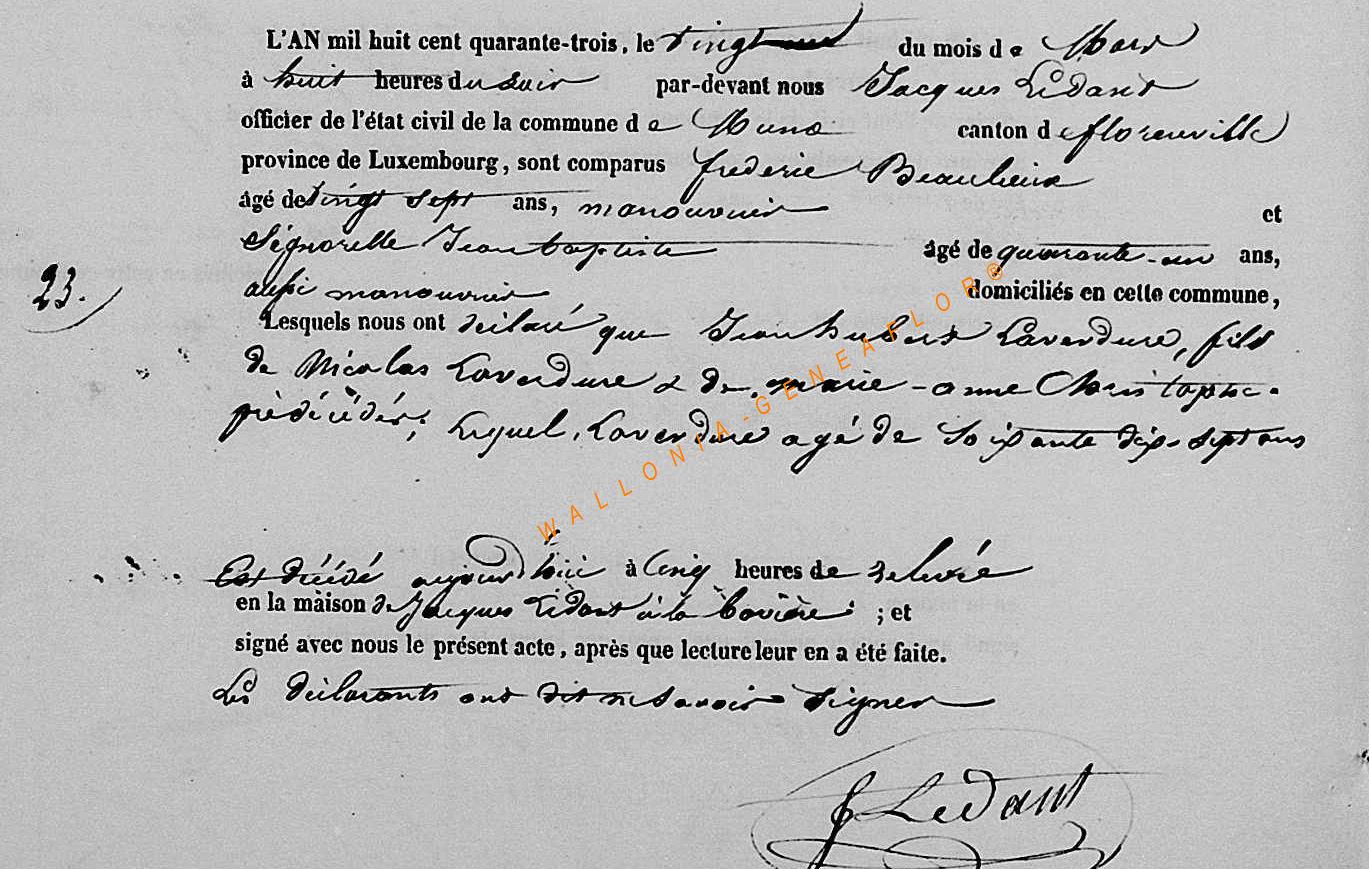 L'AN mil huit cent quarante-trois, le vingt du mois de Mars
à huit heures du Soir par-devant nous Jacques Lédant
officier de l'état civil de la commune de Muno canton de florenville
province de Luxembourg, sont comparus frederic Beaulieux
âgé de vingt sept ans, manouvrier et
Signorelle Jean baptiste âgé de quarante-un ans,
aussi manouvrier domiciliés en cette commune,
23.
Lesquels nous ont déclaré que Jean hubert Laverdure, fils
de Nicolas Laverdure & de marie-anne Christophe.
prédécédés; Lequel Laverdure agé de Soixante dix-sept ans
Est décédé aujourd'hui à Cinq heures de relevée
en la maison de Jacques Lédant à la ; et
signé avec nous le présent acte, après que lecture leur en a été faite.
Les déclarants ont dit ne Savoir Signer
J Ledant
WALLONIA-GENEAFLOR®